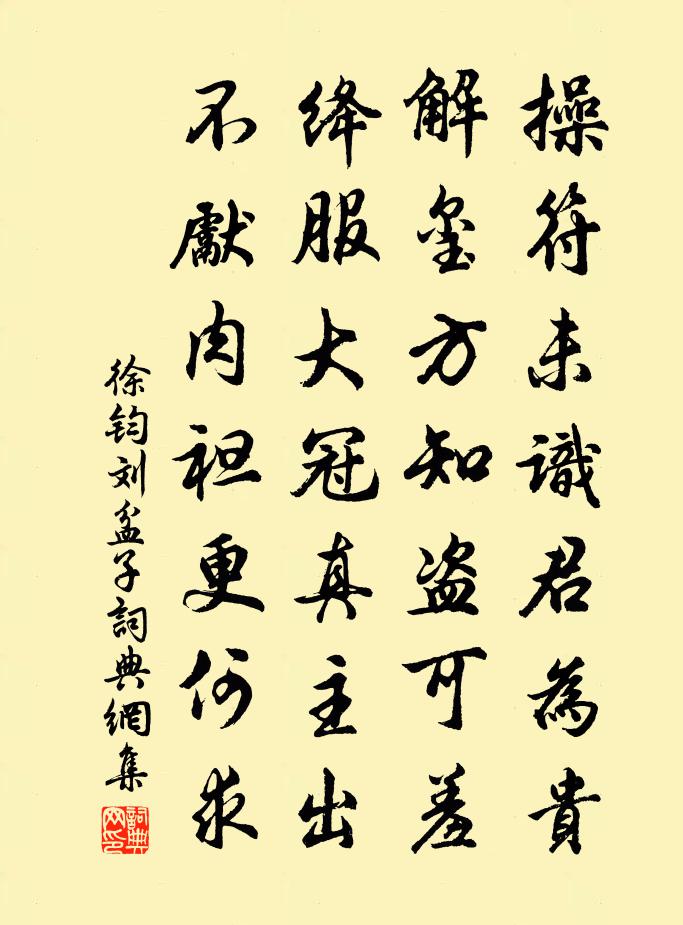 操符未識君為貴
解璽方知盗可羞
绛服大冠真主出
不獻肉袒更何求
徐钧刘盆子詞典網集
詞典网印